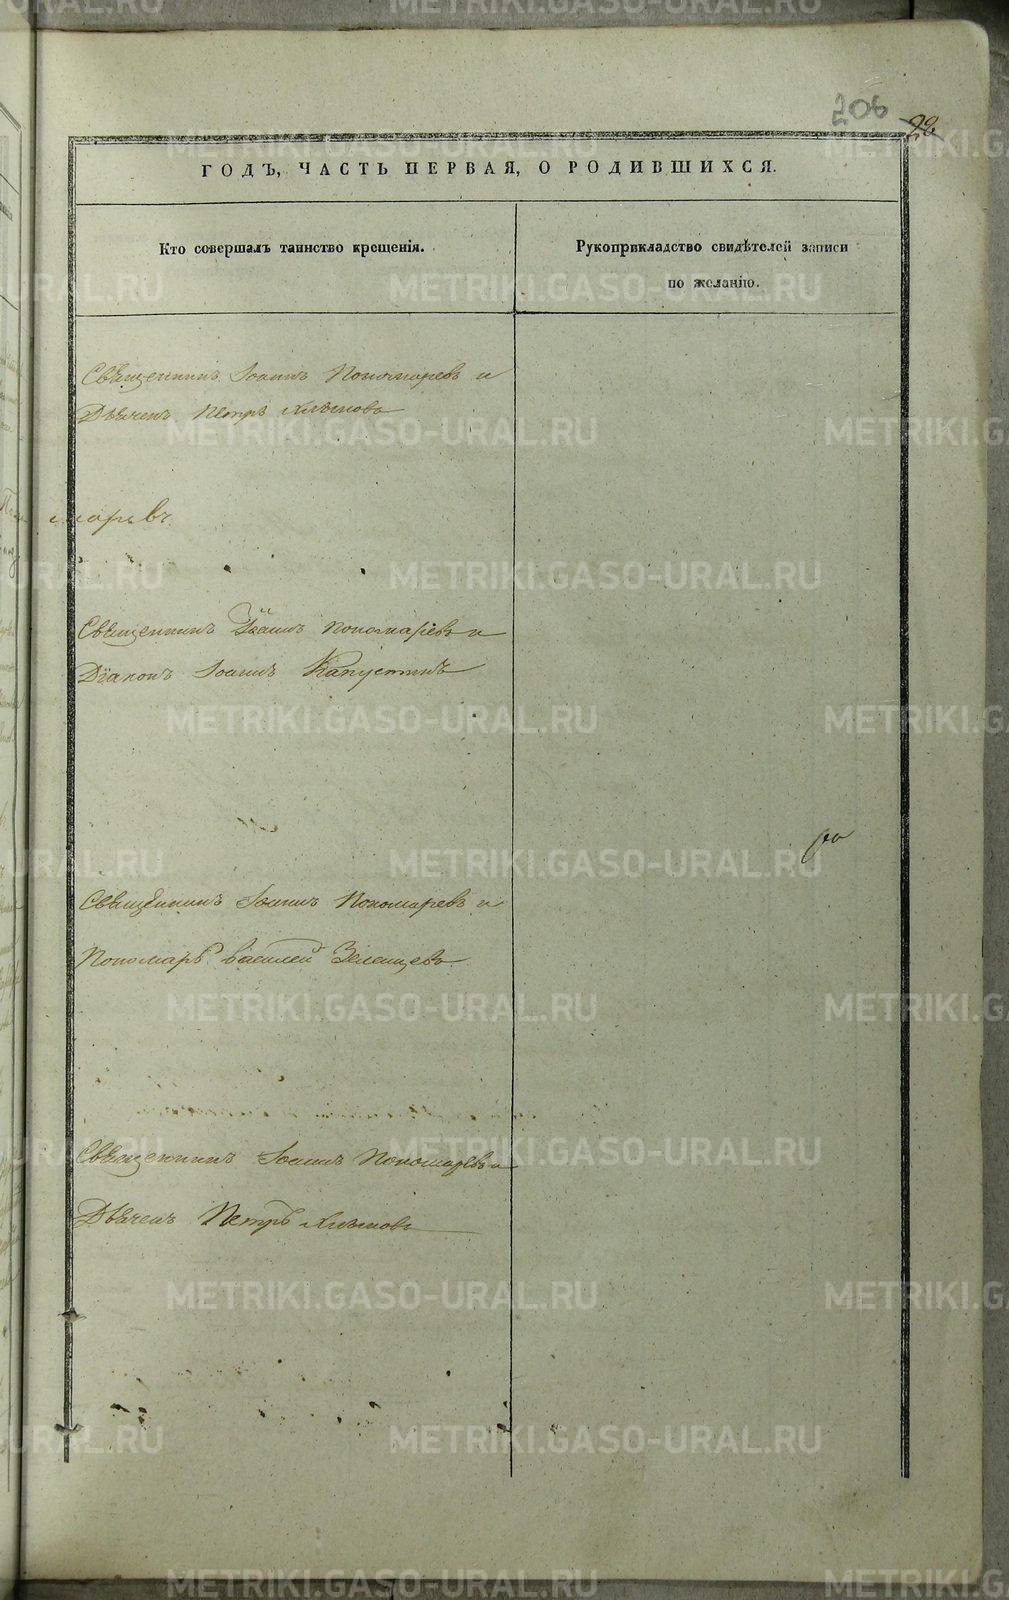 206
22
ГОДЪ, ЧАСТЬ ПЕРВАЯ, О РОДИВШИХСЯ.
Кто совершалъ таинство крещенія.
Рукоприкладство свидѣтелей записи
по желанію.
Священникъ Іоаннъ Пономаревъ и
Дьячекъ Петръ
маревъ
Священникъ Іоаннъ Пономаревъ и
Діаконъ Іоаннъ Капустинъ
Священникъ Іоаннъ Пономаревъ и
Пономарь Василей Зеленцевъ
Священникъ Іоаннъ Пономаревъ и
Дьячекъ Петръ
METRIKI.GASO-URAL.RU